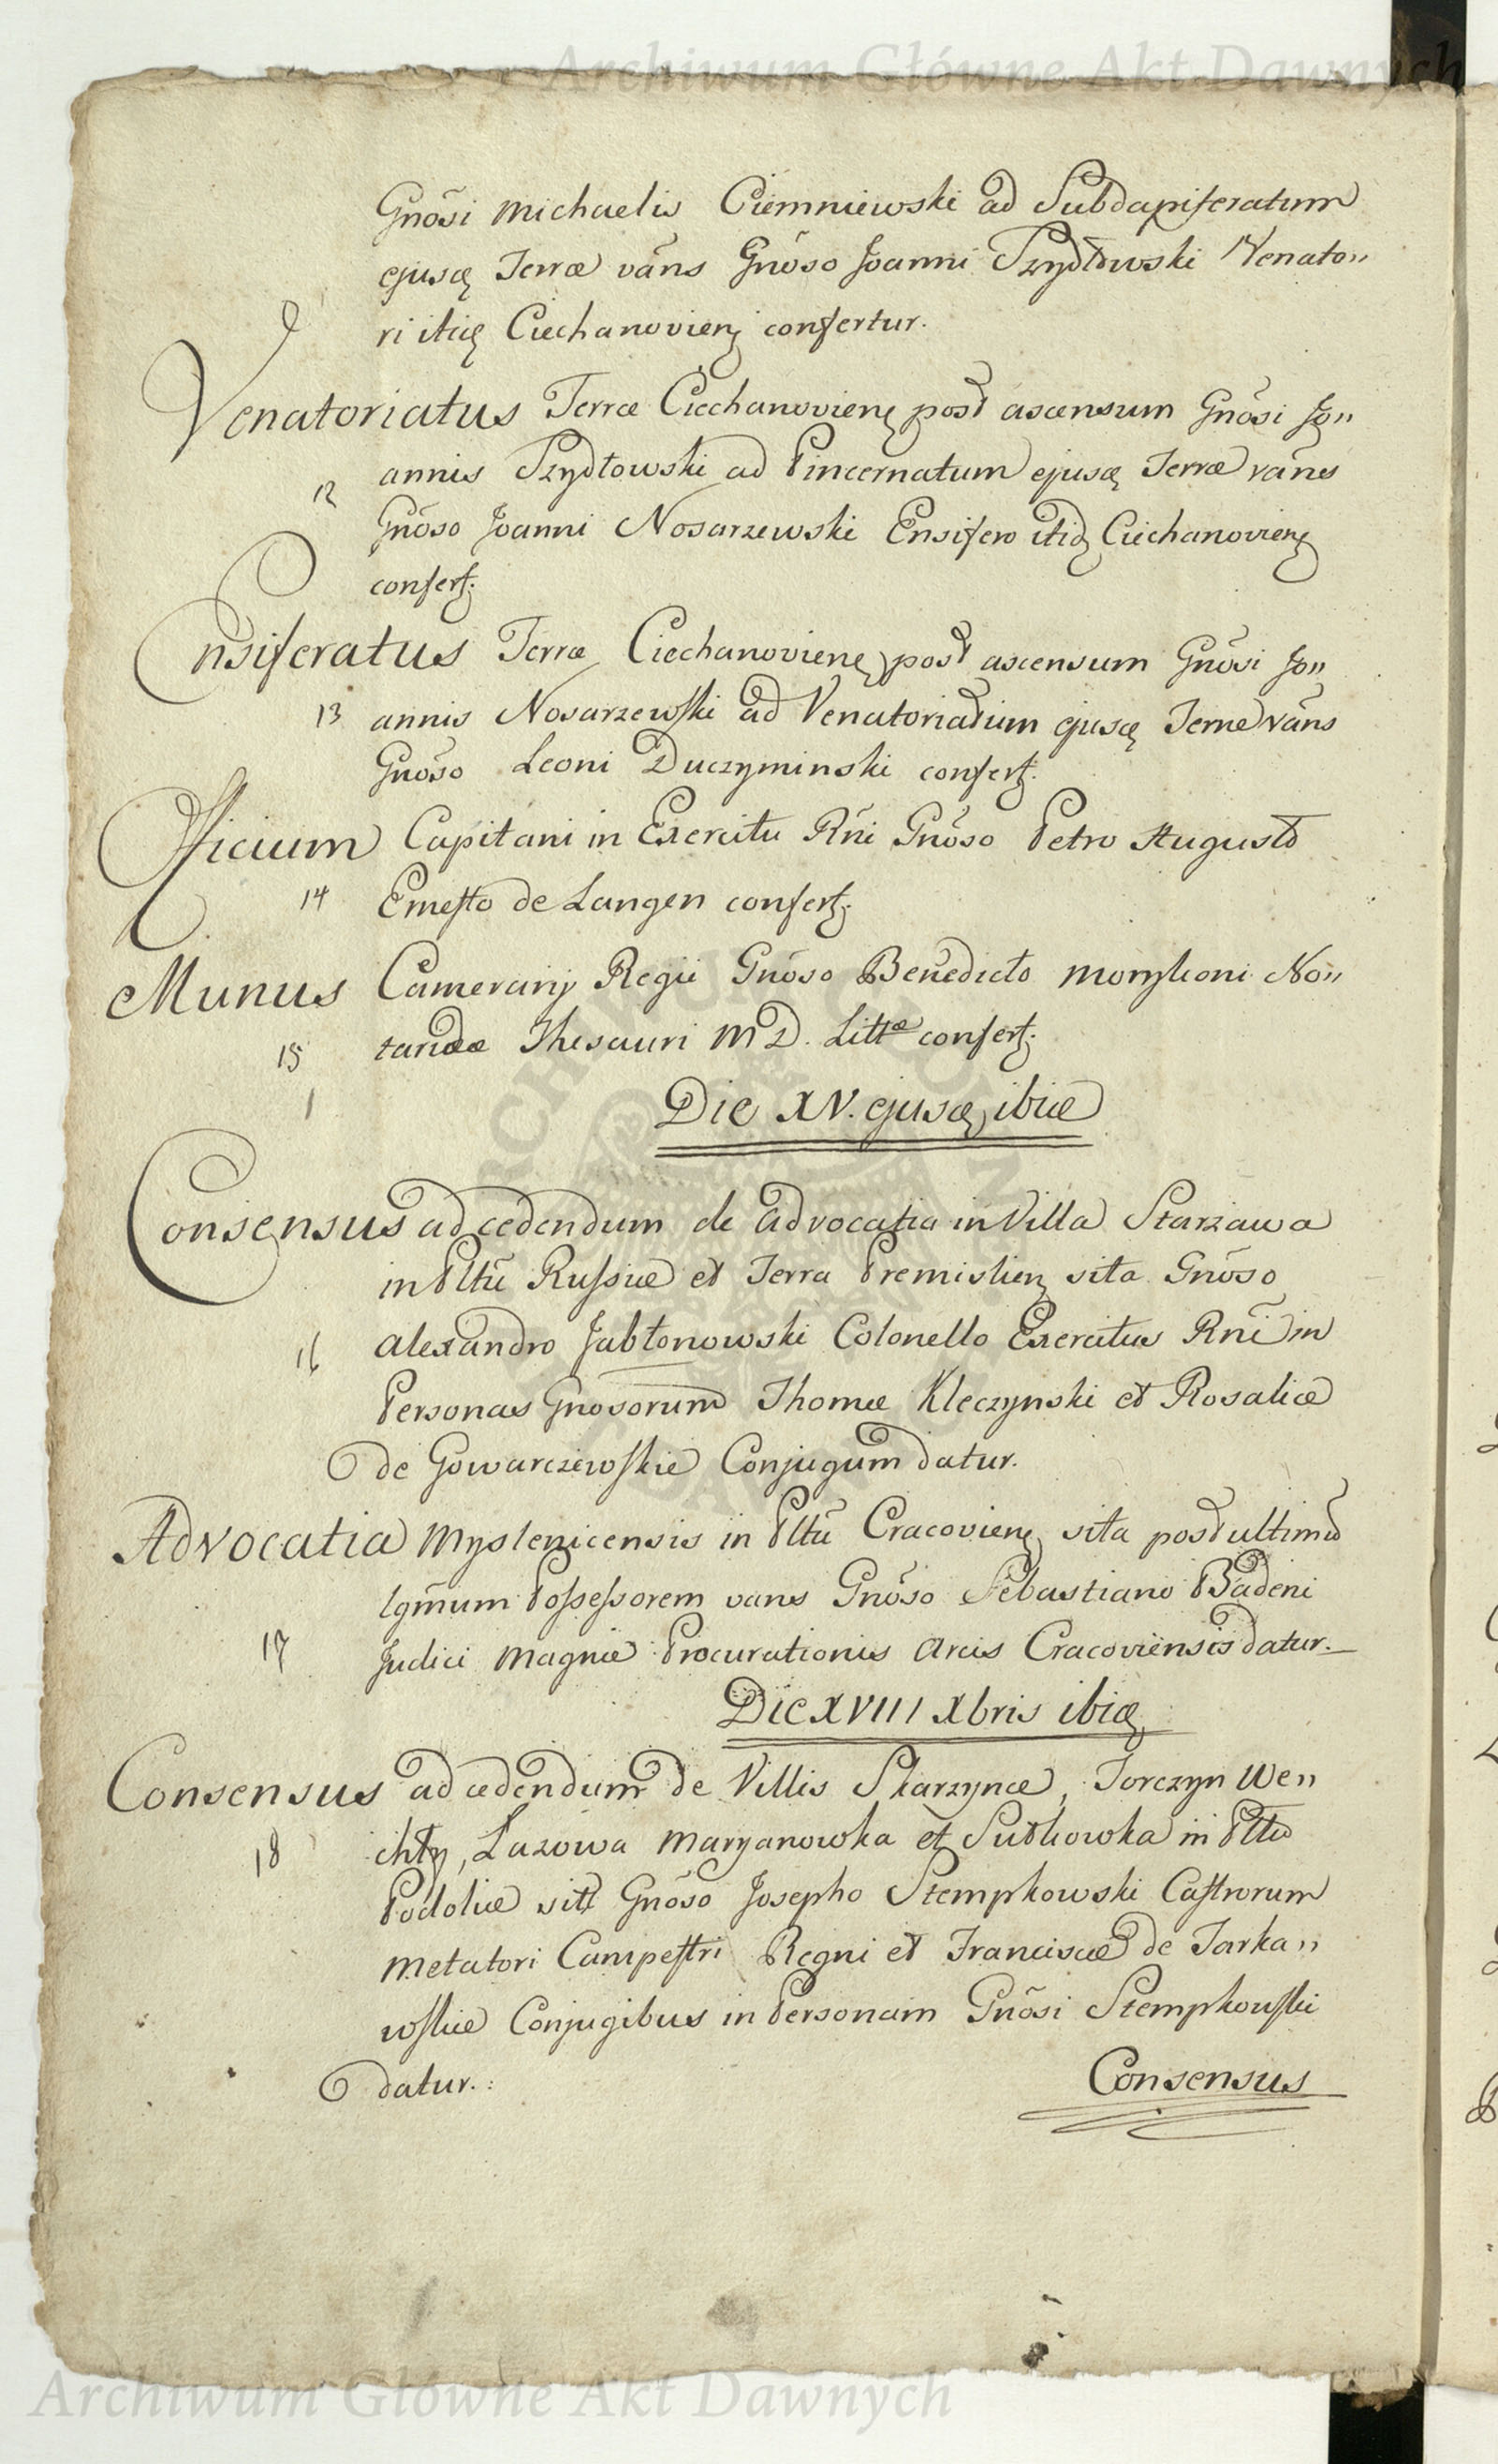 Archiwum Główne Akt Dawnych
Gnõsi Michaelis Ciemniewski ad Subdapiferatum
ejusq Terræ vãns Gnõso Joanni Szydłowski Venato„
ri itiq Ciechanovienỹ confertur.
Venatoriatus Terræ Ciechanovienę post ascensum Gnõsi Jo„
annis Szydłowski ad Pincernatum ejusq Terræ vãns
12
Gnõso Joanni Nosarzewski Ensifero itiq Ciechanovienę
confert.
Ensiferatus Terræ Ciechanovienę post ascensum Gnõsi Jo„
13 annis Nosarzewski ad Venatoriatum ejusq Terræ vãns
Gnõso Leoni Duczyminski confert.
Officium Capitani in Exercitu Rñi Gnõso Petro Augusto
14 Ernesto de Langen confert.
Munus Camerarij Regii Gnõso Benedicto Morykoni No„
15 taridæ Thesauri M D. Littæ confert.
Die XV. ejusq ibiq
Consensus ad cedendum de advocatia in Villa Starzawa
in Pltũ Russiæ et Terra Premislien sita Gnõso
16 Alexandro Jabłonowski Colonello Exercitus Rñi in
Personas Gnosorum Thomæ Kleczynski et Rosaliæ
de Gowarczewskie Conjugum datur.
Advocatia Myslenicensis in Pltũ Cracovienę sita post ultimũ
lgm̃um Possessorem vans Gnõso Sebastiano Badeni
17 Judici Magniæ Procurationis Arcis Cracoviensis datur.
Die XVIII Xbris ibiq
Consensus ad cedendum de Villis Skarzynce, Torczyn We„
18 ichty, Lazowa Maryanowka et Sutkowka in Pltũ
Podoliæ sit Gnõso Josepho Stempkowski Castrorum
Metatori Campestri Regni et Franciscæ de Tarka„
wskie Conjugibus in Personam Gnõsi Stempkowski
datur.:
Consensus
Archiwum Główne Akt Dawnych